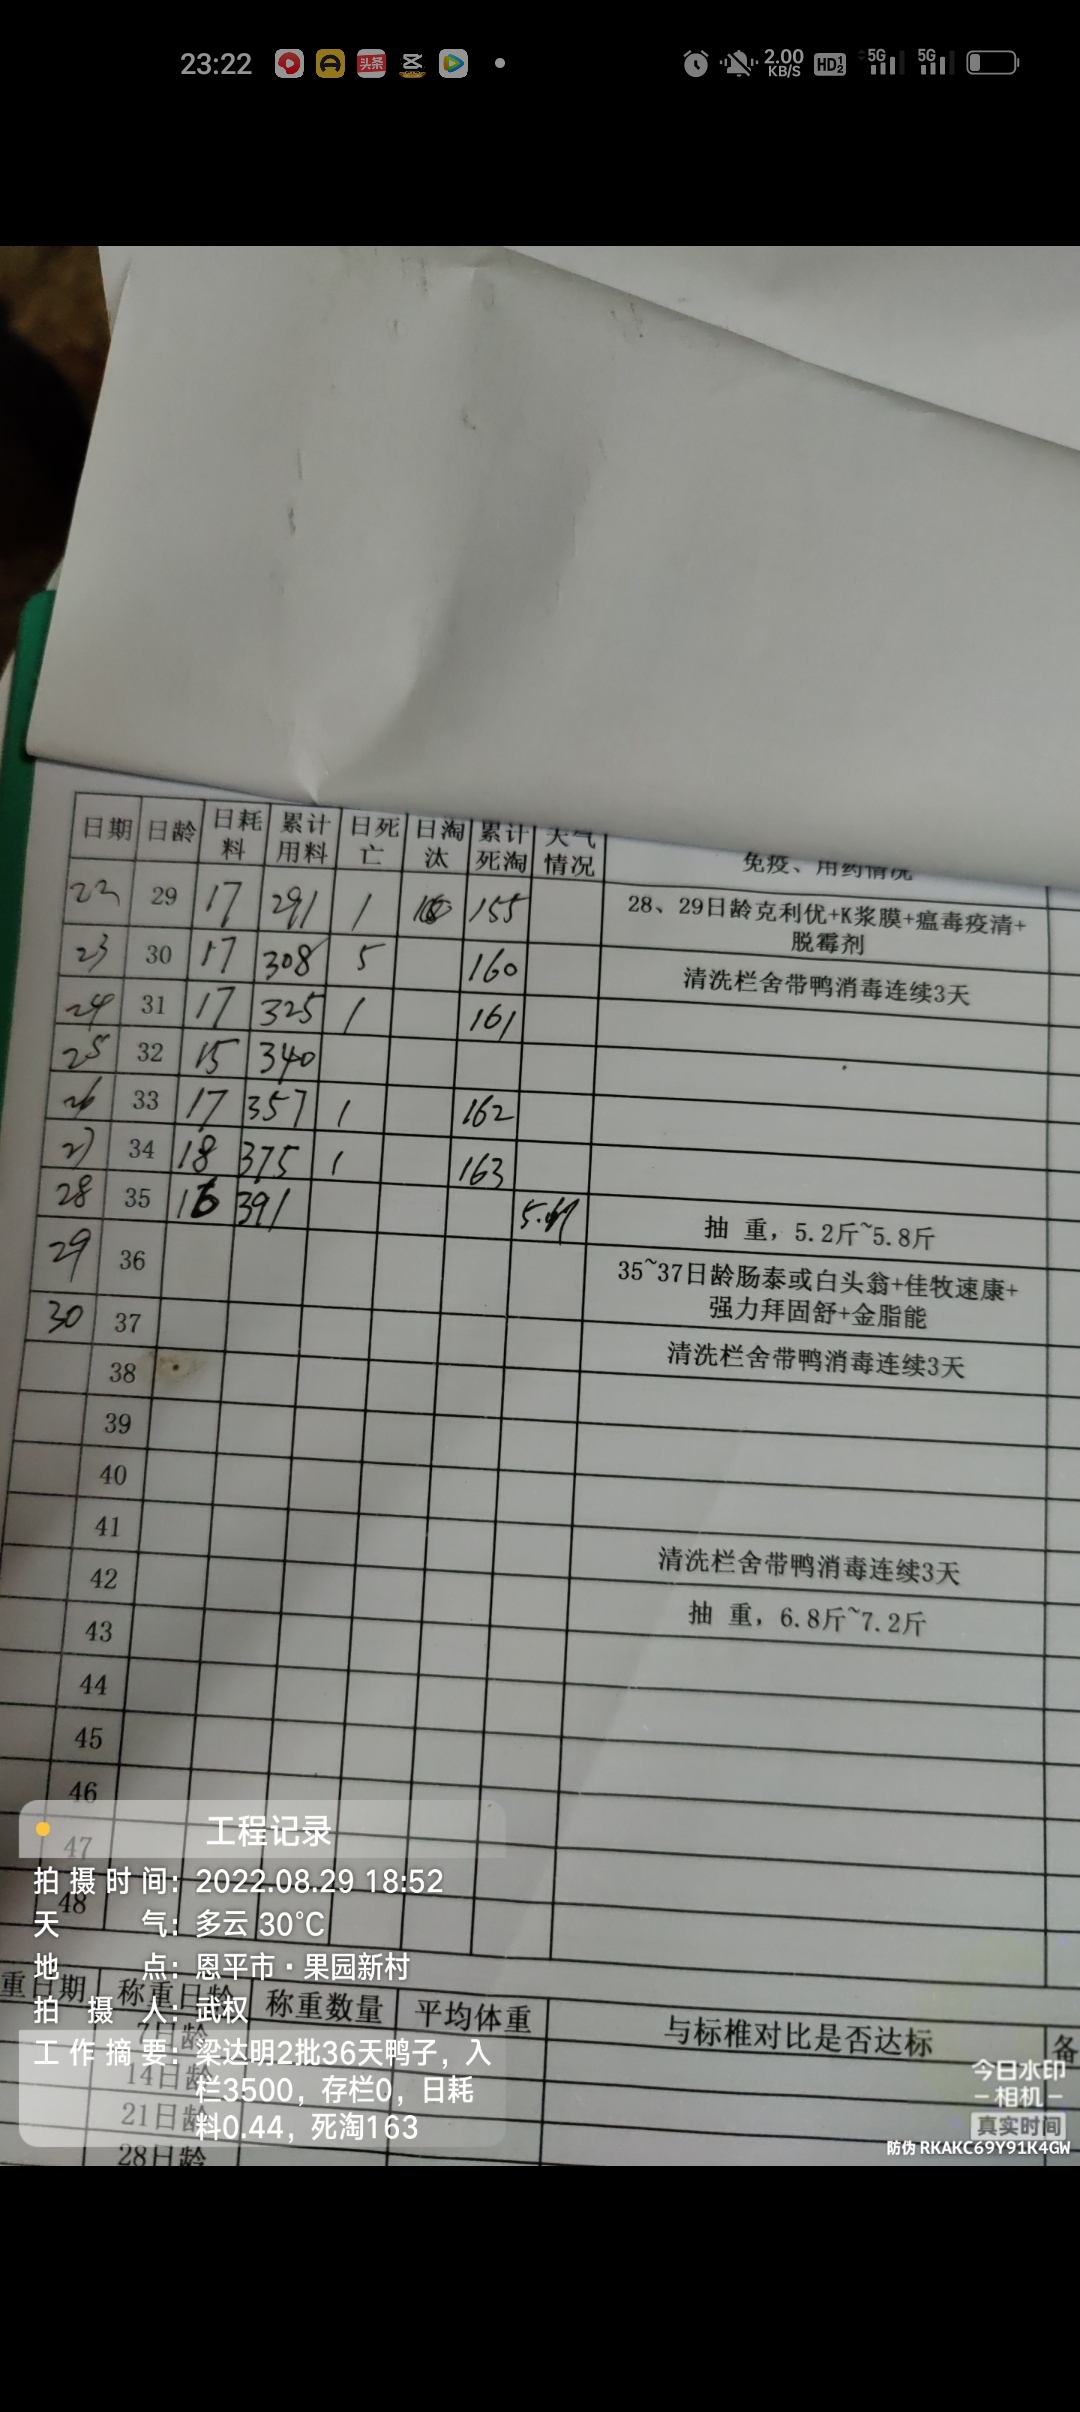 23:22 头条 2.00 KB/S HD 5G 5G
日期 日龄 日耗料 累计用料 日死亡 日淘汰 累计死淘 天气情况 免疫、用药情况
22 29 17 291 1 155 28、29日龄克利优+K浆膜+瘟毒疫清+
脱霉剂
23 30 17 308 5 160 清洗栏舍带鸭消毒连续3天
24 31 17 325 1 161
25 32 15 340
26 33 17 357 1 162
27 34 18 375 1 163
28 35 16 391 抽 重，5.2斤~5.8斤
29 36 35~37日龄肠泰或白头翁+佳牧速康+
强力拜固舒+金脂能
30 37 清洗栏舍带鸭消毒连续3天
38
39
40
41
42 清洗栏舍带鸭消毒连续3天
43 抽 重，6.8斤~7.2斤
44
45
46
47
48
工程记录
拍摄时间：2022.08.29 18:52
天气：多云 30°C
地点：恩平市·果园新村
拍摄人：武权
工作摘要：梁达明2批36天鸭子，入
栏3500，存栏0，日耗
料0.44，死淘163
重日期 称重日龄 称重数量 平均体重 与标椎对比是否达标 备
7日龄
14日龄
21日龄
28日龄
今日水印
相机
真实时间
防伪 RKAKC69Y91K4GW